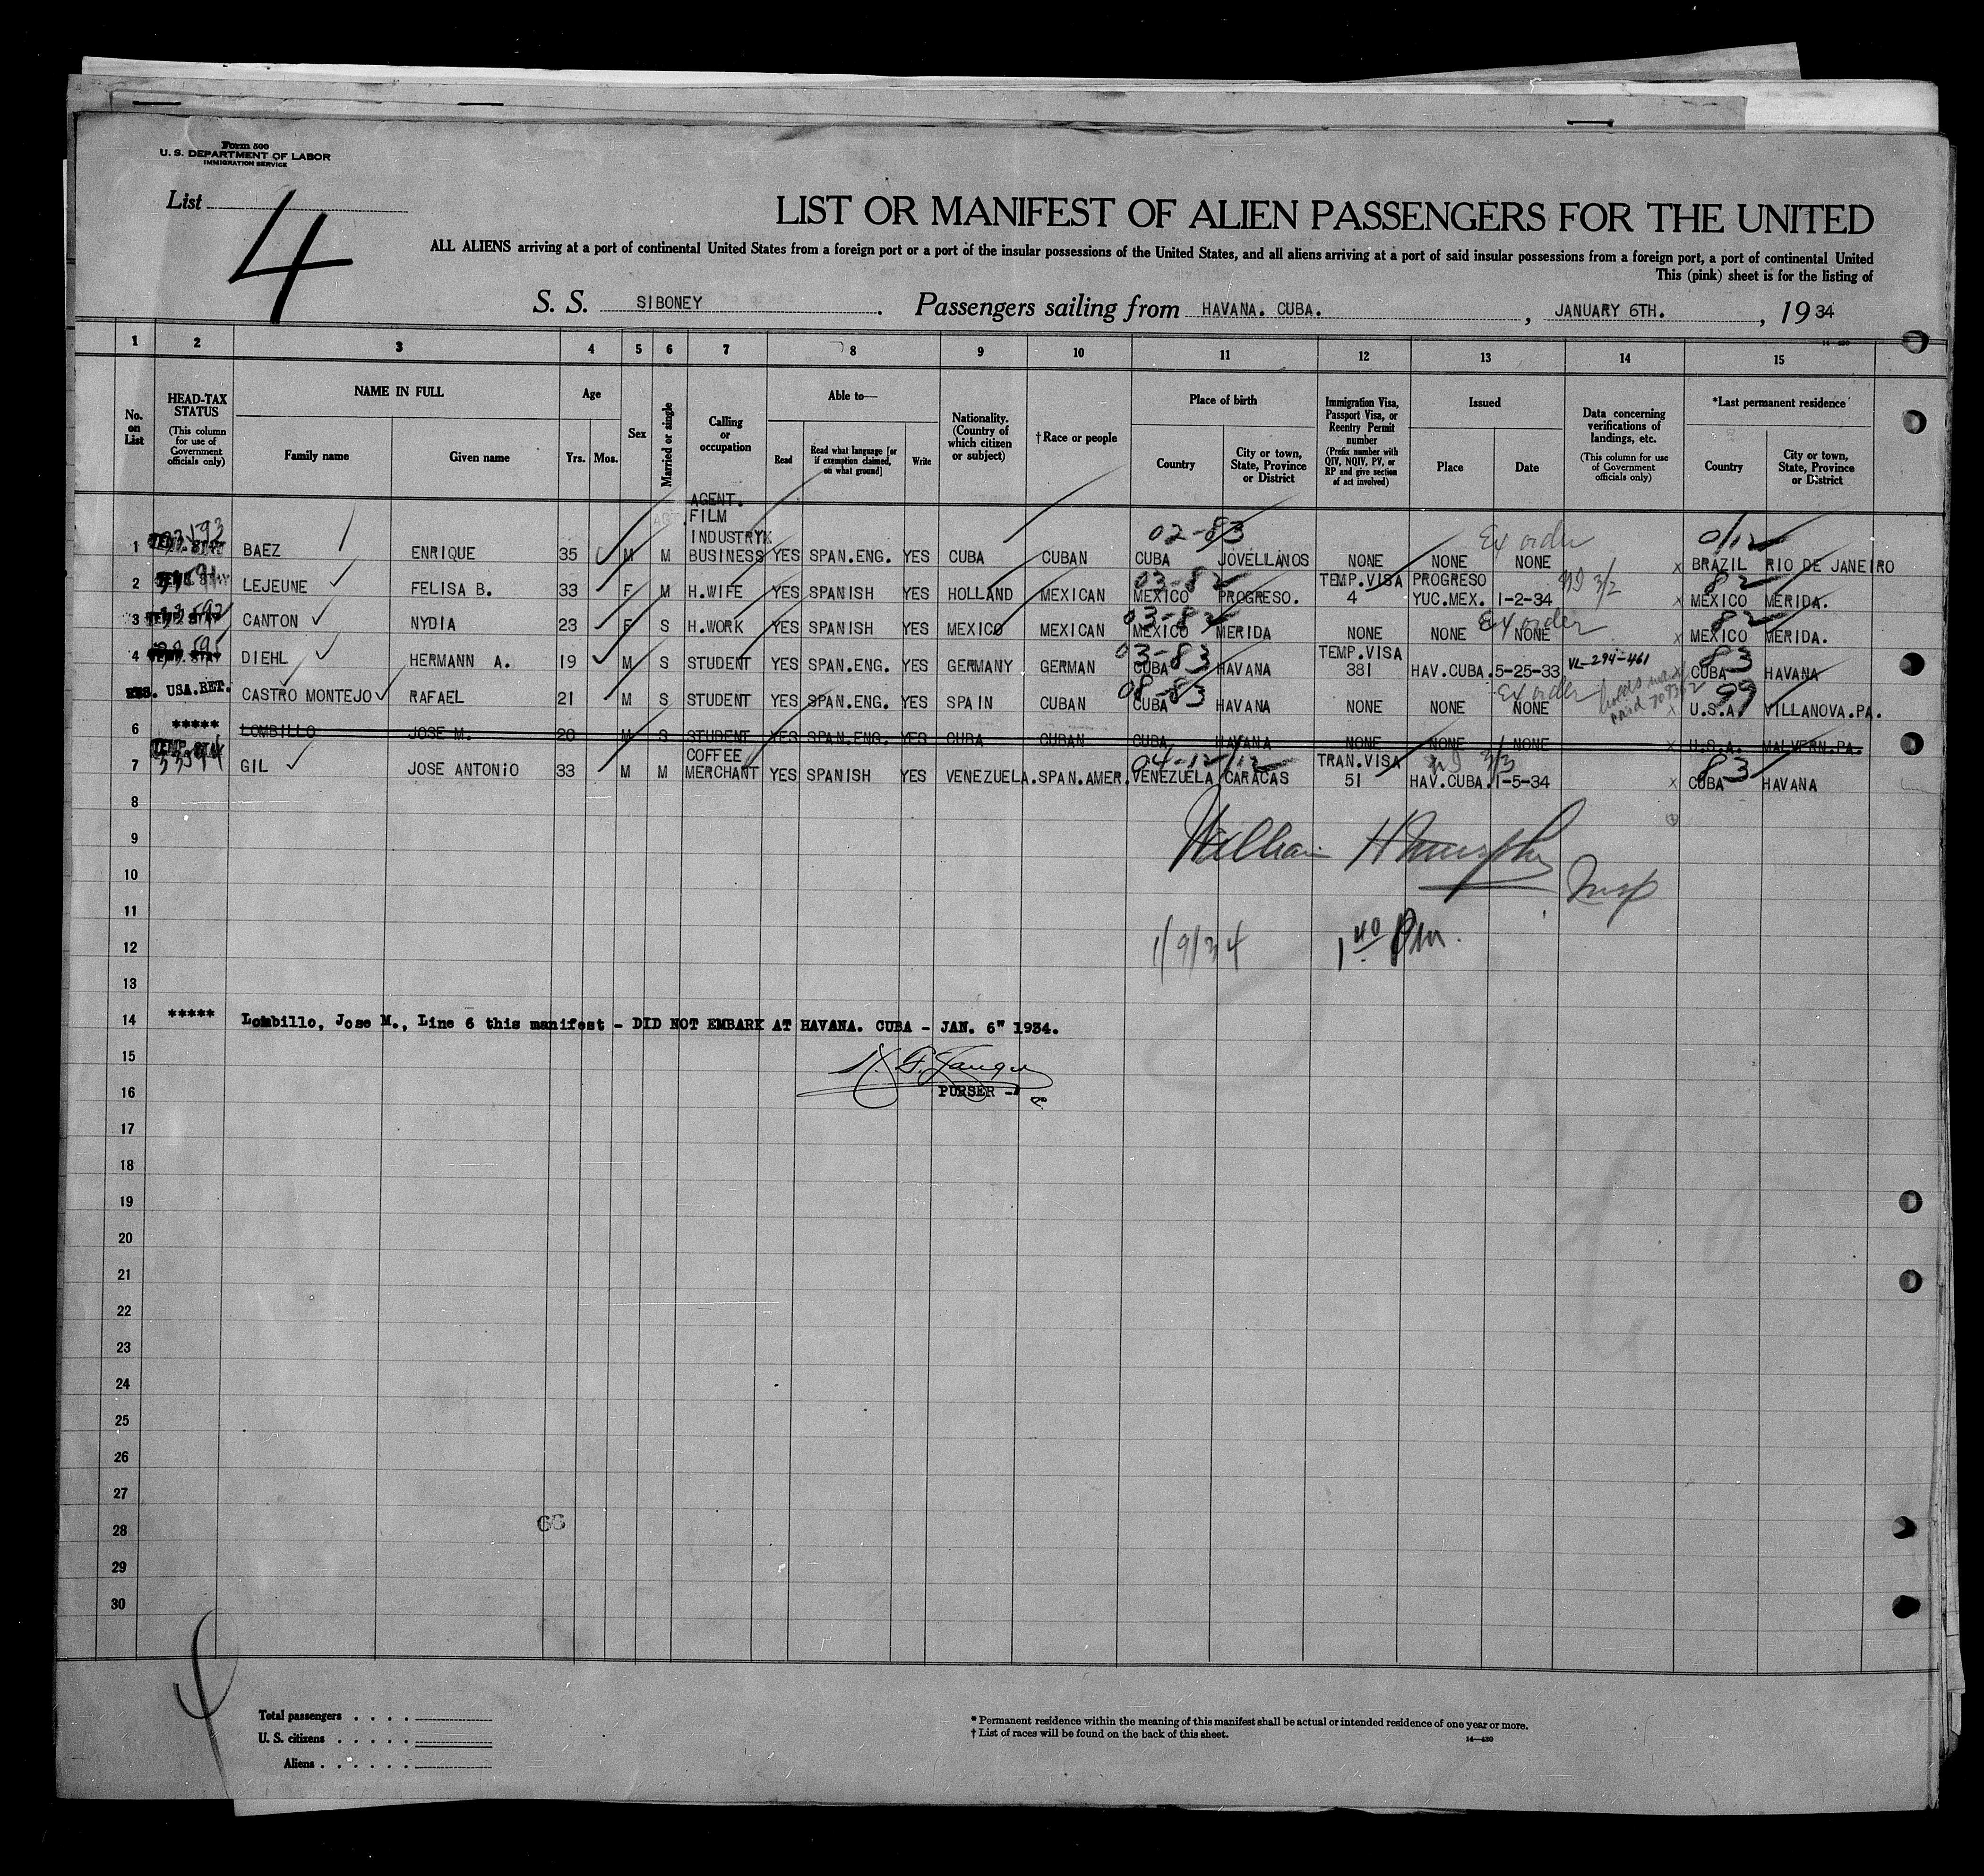 Form 500
U. S. DEPARTMENT OF LABOR
IMMIGRATION SERVICE
List 4
LIST OR MANIFEST OF ALIEN PASSENGERS FOR THE UNITED
ALL ALIENS arriving at a port of continental United States from a foreign port or a port of the insular possessions of the United States, and all aliens arriving at a port of said insular possessions from a foreign port, a port of continental United
This (pink) sheet is for the listing of
S. S. SIBONEY. Passengers sailing from HAVANA. CUBA., JANUARY 6TH., 1934
1 2 3 4 5 6 7 8 9 10 11 12 13 14 15
No. on List
HEAD-TAX STATUS (This column for use of Government officials only)
NAME IN FULL Family name Given name
Age Yrs. Mos.
Sex
Married or single
Calling or occupation
Able to— Read Read what language [or if exemption claimed, on what ground] Write
Nationality. (Country of which citizen or subject)
†Race or people
Place of birth Country City or town, State, Province or District
Immigration Visa, Passport Visa, or Reentry Permit number (Prefix number with QIV, NQIV, PV, or RP and give section of act involved)
Issued Place Date
Data concerning verifications of landings, etc. (This column for use of Government officials only)
*Last permanent residence Country City or town, State, Province or District
14—430
AGENT.
FILM
INDUSTRY 02-83 Ex order 0/12
1 TEMP. STAY BAEZ ENRIQUE 35 M M BUSINESS YES SPAN.ENG. YES CUBA CUBAN CUBA JOVELLANOS NONE NONE NONE x BRAZIL RIO DE JANEIRO
03-82 TEMP.VISA PROGRESO 3/2 82
2 LEJEUNE FELISA B. 33 F M H.WIFE YES SPANISH YES HOLLAND MEXICAN MEXICO PROGRESO. 4 YUC.MEX. 1-2-34 x MEXICO MERIDA.
03-82 Ex order 82
3 TEMP. STAY CANTON NYDIA 23 F S H.WORK YES SPANISH YES MEXICO MEXICAN MEXICO MERIDA NONE NONE NONE x MEXICO MERIDA.
03-83 TEMP.VISA VL-294-461 83
4 TEMP. STAY DIEHL HERMANN A. 19 M S STUDENT YES SPAN.ENG. YES GERMANY GERMAN CUBA HAVANA 381 HAV.CUBA. 5-25-33 x CUBA HAVANA
08-83 Ex order 99
RES. USA.RET. CASTRO MONTEJO RAFAEL 21 M S STUDENT YES SPAN.ENG. YES SPAIN CUBAN CUBA HAVANA NONE NONE NONE x U.S.A. VILLANOVA.PA.
6 ***** LOMBILLO JOSE M. 20 M S STUDENT YES SPAN.ENG. YES CUBA CUBAN CUBA HAVANA NONE NONE NONE x U.S.A. MALVERN.PA.
COFFEE 04-12/12 TRAN.VISA 3/3 83
7 TEMP. STAY GIL JOSE ANTONIO 33 M M MERCHANT YES SPANISH YES VENEZUELA. SPAN.AMER. VENEZUELA CARACAS 51 HAV.CUBA. 1-5-34 x CUBA HAVANA
8
9 William H Murphy
10 Insp
11
12 1/9/34 1 40 Pm.
13
14 ***** Lombillo, Jose M., Line 6 this manifest - DID NOT EMBARK AT HAVANA. CUBA - JAN. 6" 1934.
15
16 PURSER -
17
18
19
20
21
22
23
24
25
26
27
28
29
30
Total passengers . . . .
U. S. citizens . . . . .
Aliens . . . . . .
* Permanent residence within the meaning of this manifest shall be actual or intended residence of one year or more.
† List of races will be found on the back of this sheet.
14—430